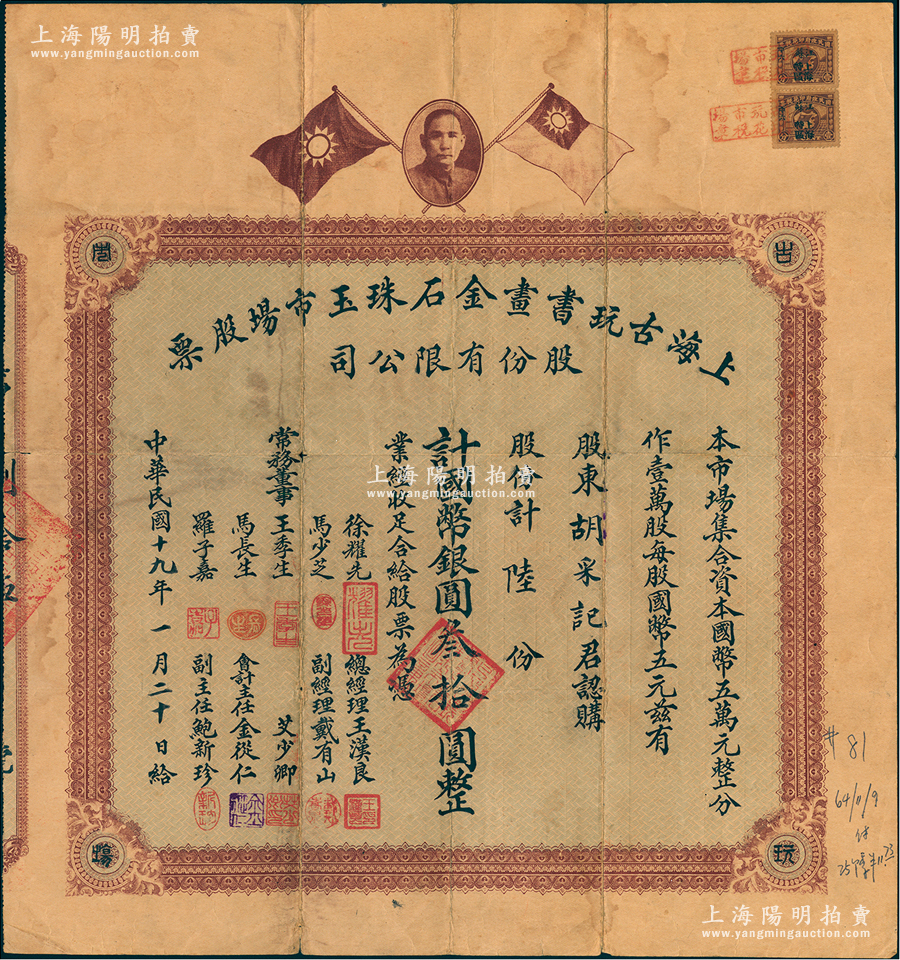 上海陽明拍賣
www.yangmingauction.com
古
玩
市
場
上海古玩書畫金石珠玉市場股票
股份有限公司
本市場集合資本國幣五萬元整分
作壹萬股每股國幣五元兹有
股東胡采記君認購
股份計陸份
計國幣銀圓叁拾圓整
業經收足合給股票為憑
徐耀先
馬少芝
常務董事王季生
馬長生
羅子嘉
總經理王漢良
副經理戴有山
艾少卿
會計主任金從仁
副主任鮑新珍
中華民國十九年一月二十日給
上海陽明拍賣
www.yangmingauction.com
# 81
64/11/9
上海陽明拍賣
www.yangmingauction.com